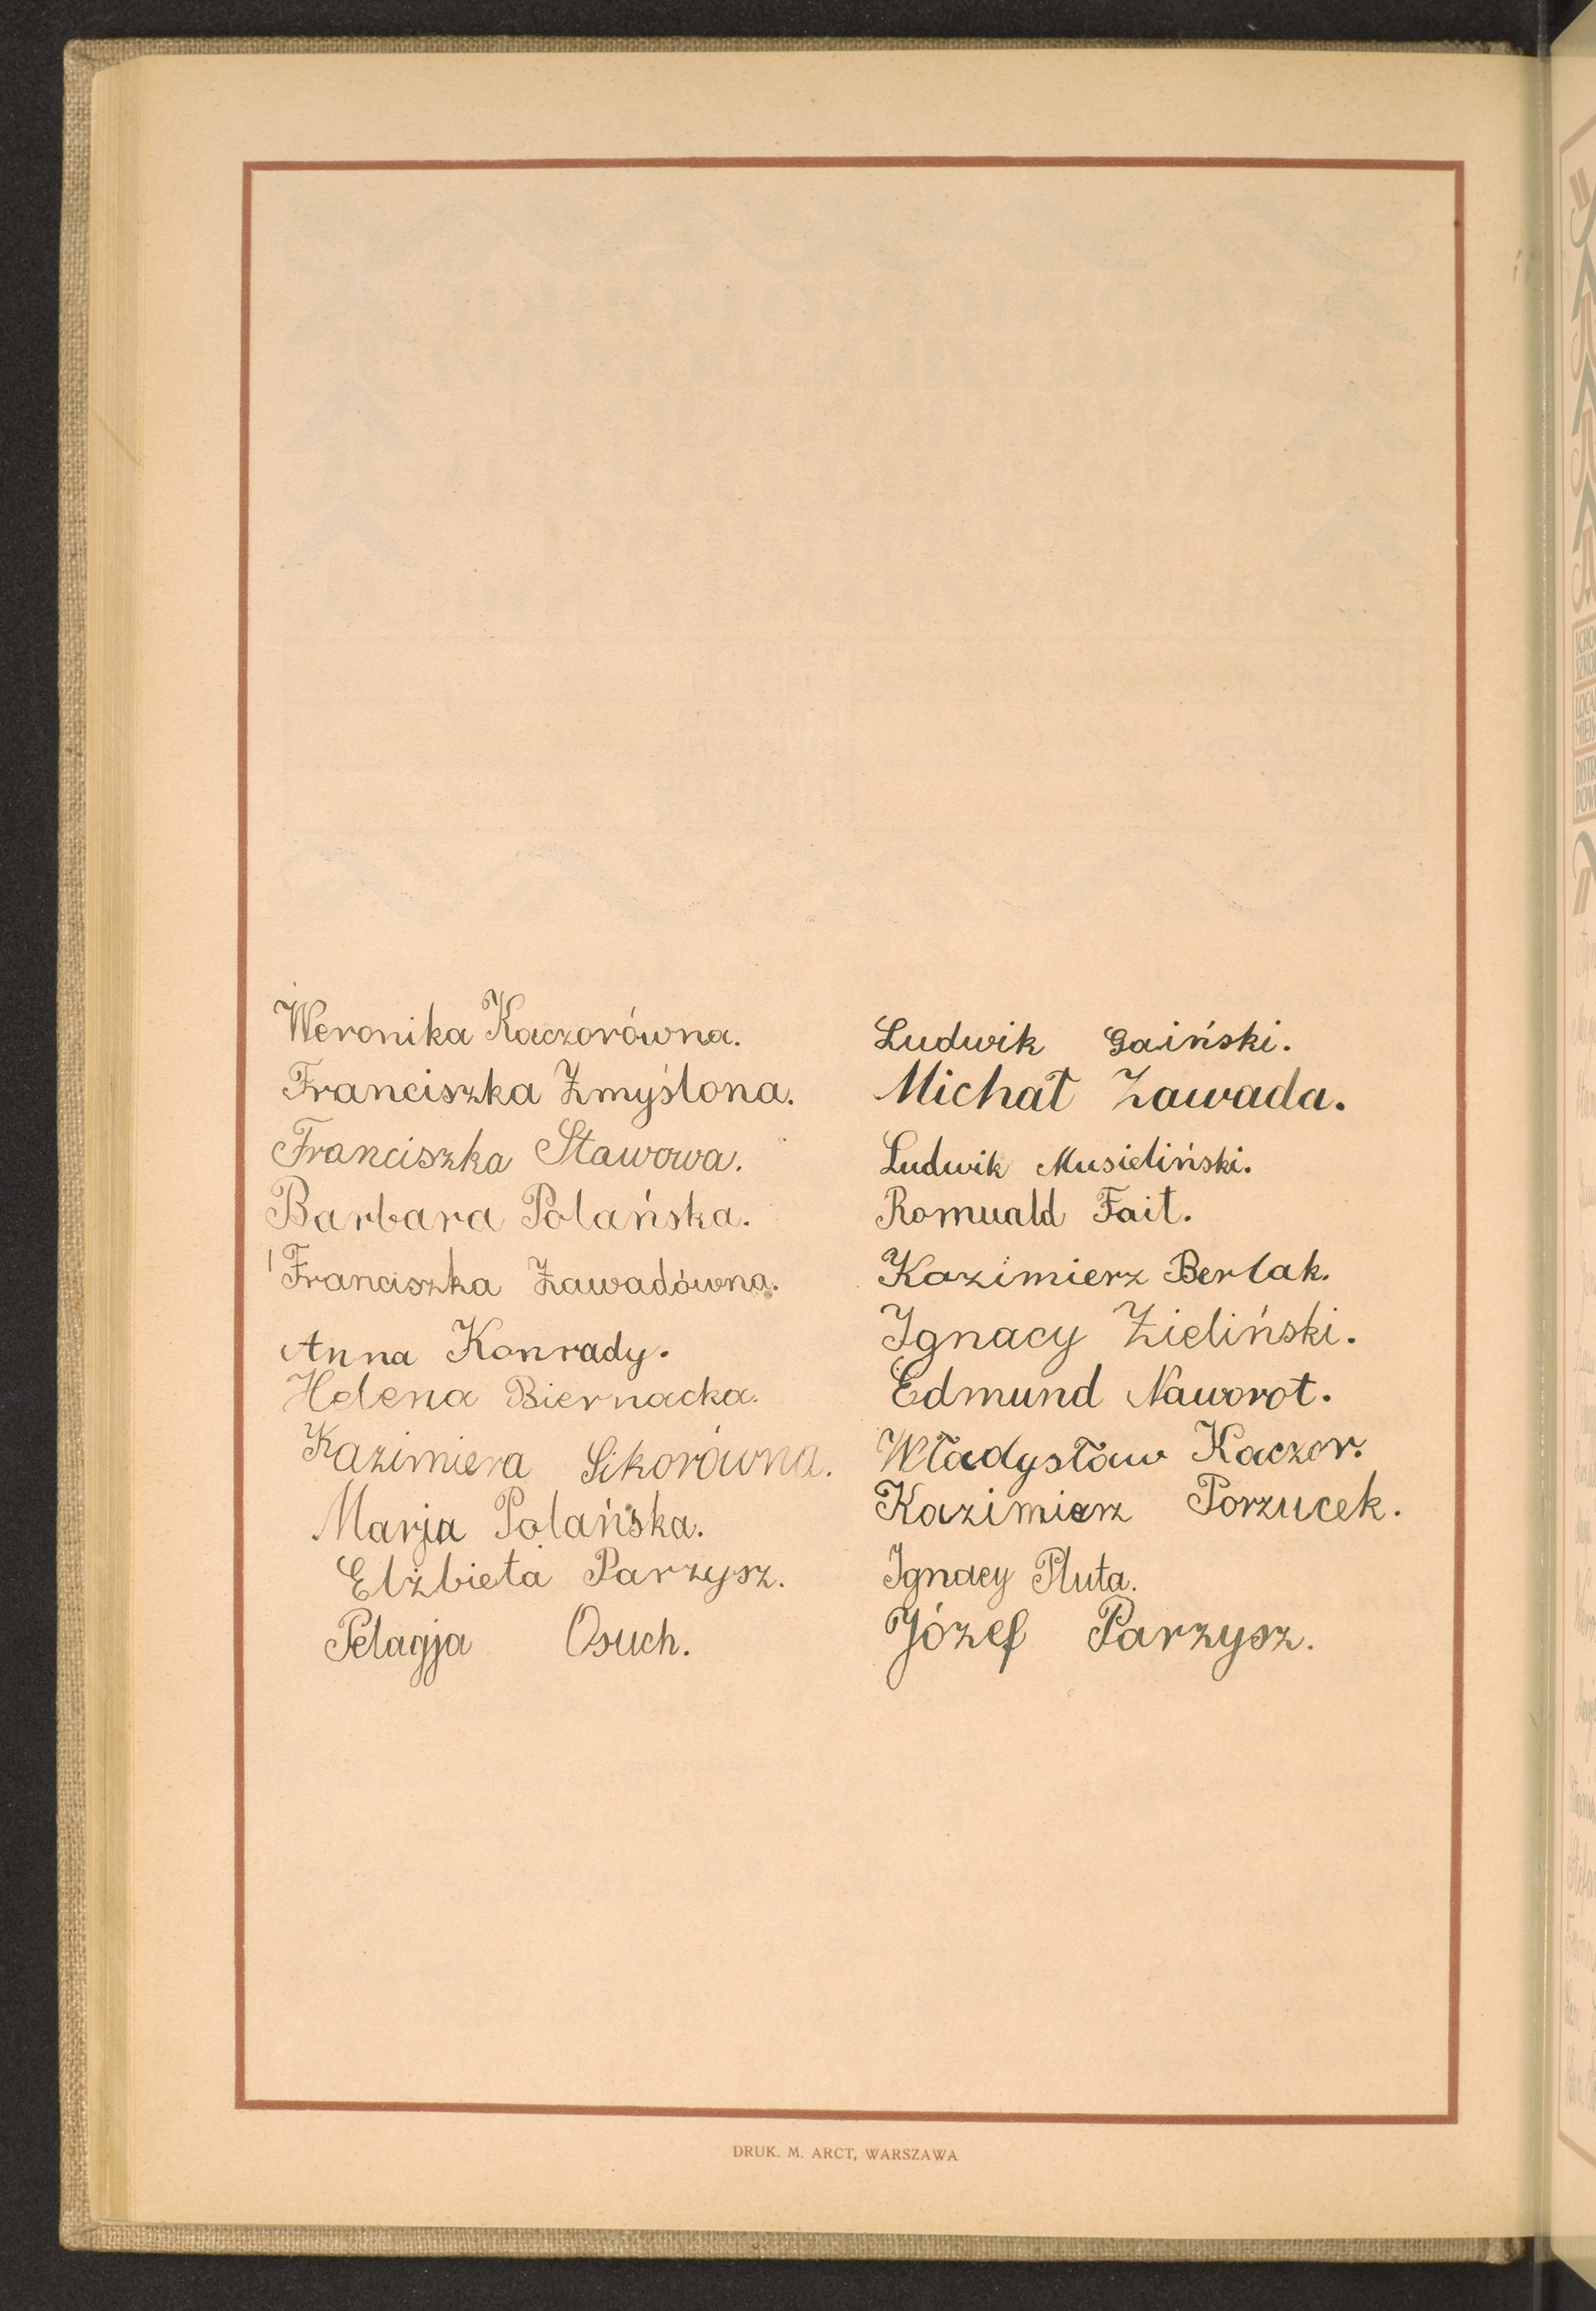 Weronika Kaczorówna.
Franciszka Zmyślona.
Franciszka Stawowa.
Barbara Polańska.
Franciszka Zawadówna.
Anna Konrady.
Helena Biernacka.
Kazimiera Sikorówna.
Marja Polańska.
Elżbieta Parzysz.
Pelagja Osuch.
Ludwik Gaiński.
Michał Zawada.
Ludwik Musieliński.
Romuald Fait.
Kazimierz Berlak.
Ignacy Zieliński.
Edmund Naworot.
Władysław Kaczor.
Kazimierz Porzucek.
Ignacy Pluta.
Józef Parzysz.
DRUK. M. ARCT, WARSZAWA